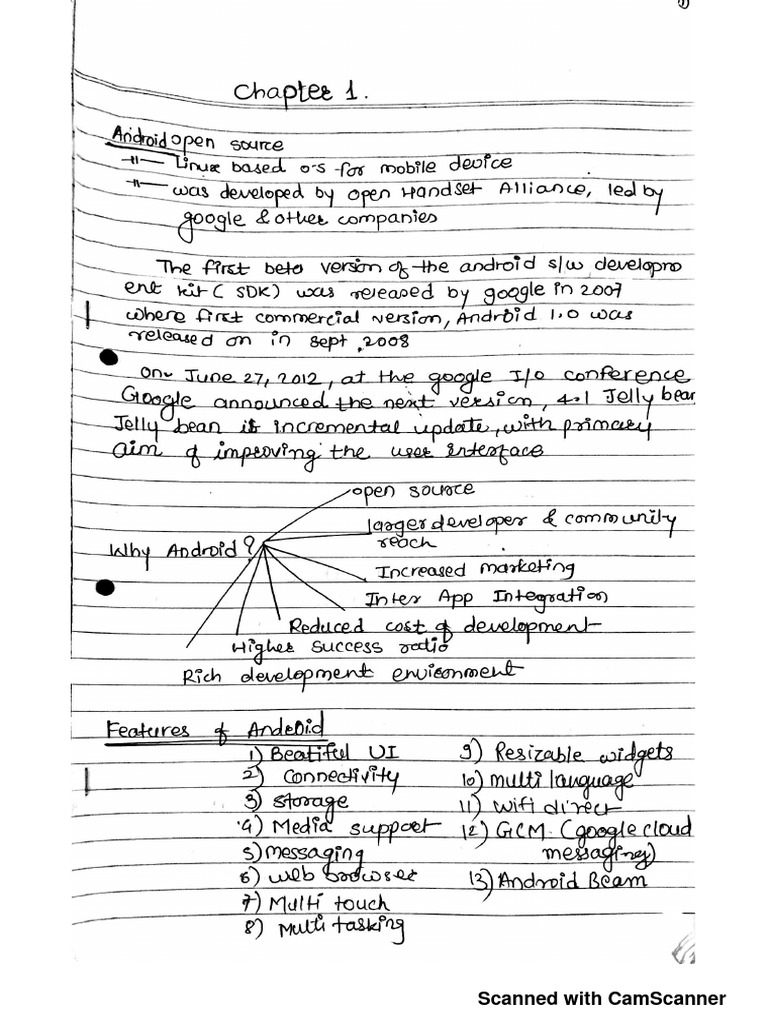 1)
Chapter 1.
Android open source
-11- Linux based o-s for mobile device
-11- was developed by open Handset Alliance, led by
google & other companies
The first beta version of the android s/w developm
ent kit ( SDK) was released by google in 2007
where first commercial version, Android 1.0 was
released on in sept, 2008
On June 27, 2012, at the google I/o conference
Google announced the next version, 4.1 Jelly bean
Jelly bean is incremental update, with primary
aim of improving the user interface
open source
larger developer & community
reach
Why Android?
Increased marketing
Inter App Integration
Reduced cost of development
Higher success ratio
Rich development environment
Features of Android
1) Beatiful UI 9) Resizable widgets
2) Connectivity 10) multi language
3) storage 11) wifi direct
4) Media support 12) GCM (google cloud
5) messaging messaging)
6) web browser 13) Android Beam
7) Multi touch
8) Multi tasking
Scanned with CamScanner